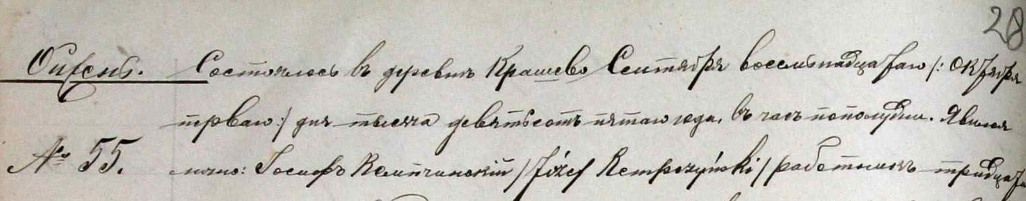 28
Оцтень. Состоялось въ деревнѣ Крашево Сентября восемьнадцатаго /: Октября
перваго :/ дня тысяча девятьсотъ пятаго года, въ часъ пополудни. Явился
№ 55. лично: Іосифъ Кемпчинскій /Józef Kempczyński/ работникъ тридца